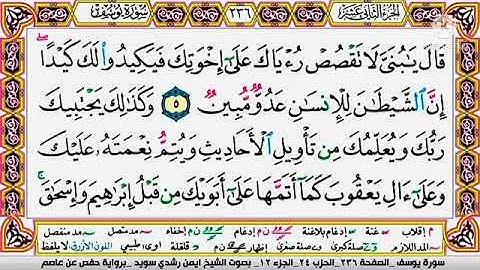 الجزء الثاني عشر ٢٣٦ سورة يوسف
قَالَ يَـٰبُنَىَّ لَا تَقْصُصْ رُءْيَاكَ عَلَىٰٓ إِخْوَتِكَ فَيَكِيدُوا۟ لَكَ كَيْدًا
إِنَّ ٱلشَّيْطَـٰنَ لِلْإِنسَـٰنِ عَدُوٌّ مُّبِينٌ ٥ وَكَذَٰلِكَ يَجْتَبِيكَ
رَبُّكَ وَيُعَلِّمُكَ مِن تَأْوِيلِ ٱلْأَحَادِيثِ وَيُتِمُّ نِعْمَتَهُۥ عَلَيْكَ
وَعَلَىٰٓ ءَالِ يَعْقُوبَ كَمَآ أَتَمَّهَا عَلَىٰٓ أَبَوَيْكَ مِن قَبْلُ إِبْرَٰهِيمَ وَإِسْحَـٰقَ ۚ
م إقلاب غنة إدغام بلاغنة ن م إدغام إخفاء مد متصل مد منفصل
المد اللازم صلة كبرى وصلة صغرى إظهار ن م قلقلة طبيعي اللون الأزرق لا يلفظ
سورة يوسف _ الصفحة ٢٣٦_ الحزب ٢٤_ الجزء ١٢_ بصوت الشيخ ايمن رشدي سويد _برواية حفص عن عاصم